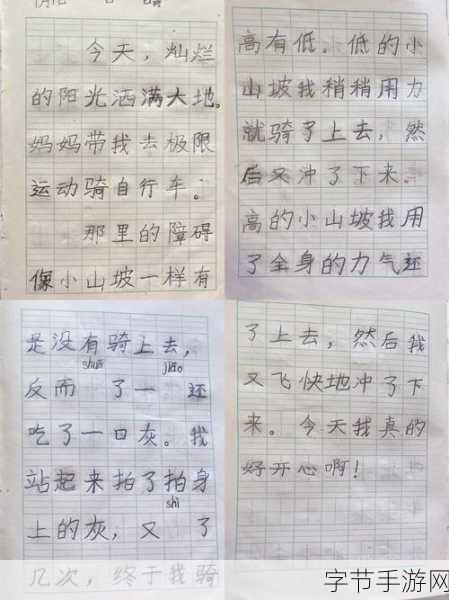 今天，灿烂
的阳光洒满大地。
妈妈带我去极限
运动骑自行车。
那里的障碍
像小山坡一样有
高有低。低的小
山坡我稍稍用力
就骑了上去，然
后又冲了下来。
高的小山坡我用
了全身的力气还
是没有骑上去，
shuāi jiāo
反而 了一 还
吃了一口灰。我
站起来拍了拍身
shì
上的灰，又 了
几次，终于我骑
了上去，然后我
又飞快地冲了下
来。今天我真的
好开心啊！
字节手游网